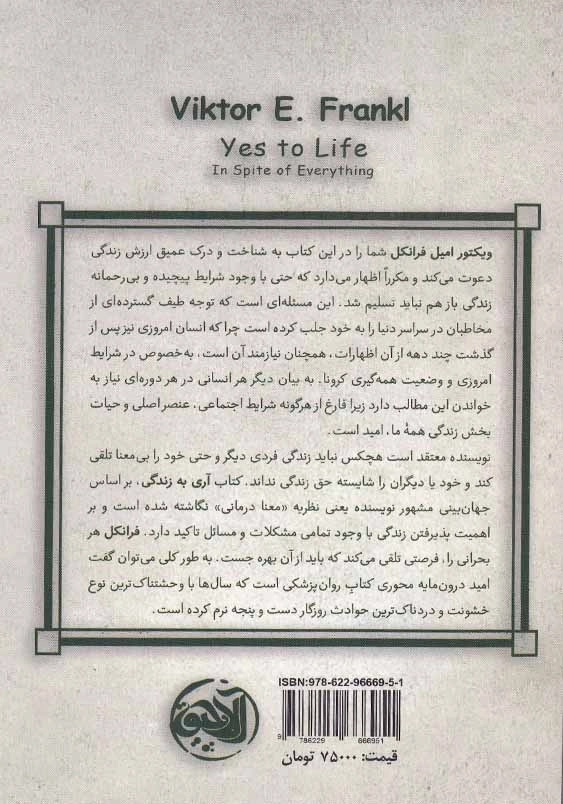 Viktor E. Frankl
Yes to Life
In Spite of Everything
ویکتور امیل فرانکل شما را در این کتاب به شناخت و درک عمیق ارزش زندگی
دعوت می‌کند و مکرراً اظهار می‌دارد که حتی با وجود شرایط پیچیده و بی‌رحمانه
زندگی باز هم نباید تسلیم شد. این مسئله‌ای است که توجه طیف گسترده‌ای از
مخاطبان در سراسر دنیا را به خود جلب کرده است چرا که انسان امروزی نیز پس از
گذشت چند دهه از آن اظهارات، همچنان نیازمند آن است، به‌خصوص در شرایط
امروزی و وضعیت همه‌گیری کرونا. به بیان دیگر هر انسانی در هر دوره‌ای نیاز به
خواندن این مطالب دارد زیرا فارغ از هرگونه شرایط اجتماعی، عنصر اصلی و حیات
بخش زندگی همهٔ ما، امید است.
نویسنده معتقد است هچکس نباید زندگی فردی دیگر و حتی خود را بی‌معنا تلقی
کند و خود یا دیگران را شایسته حق زندگی نداند. کتاب آری به زندگی، بر اساس
جهان‌بینی مشهور نویسنده یعنی نظریه «معنا درمانی» نگاشته شده است و بر
اهمیت پذیرفتن زندگی با وجود تمامی مشکلات و مسائل تاکید دارد. فرانکل هر
بحرانی را، فرصتی تلقی می‌کند که باید از آن بهره جست. به طور کلی می‌توان گفت
امید درون‌مایه محوری کتابِ روان‌پزشکی است که سال‌ها با وحشتناک‌ترین نوع
خشونت و دردناک‌ترین حوادث روزگار دست و پنجه نرم کرده است.
ISBN:978-622-96669-5-1
9 786229 666951
قیمت: ۷۵۰۰۰ تومان